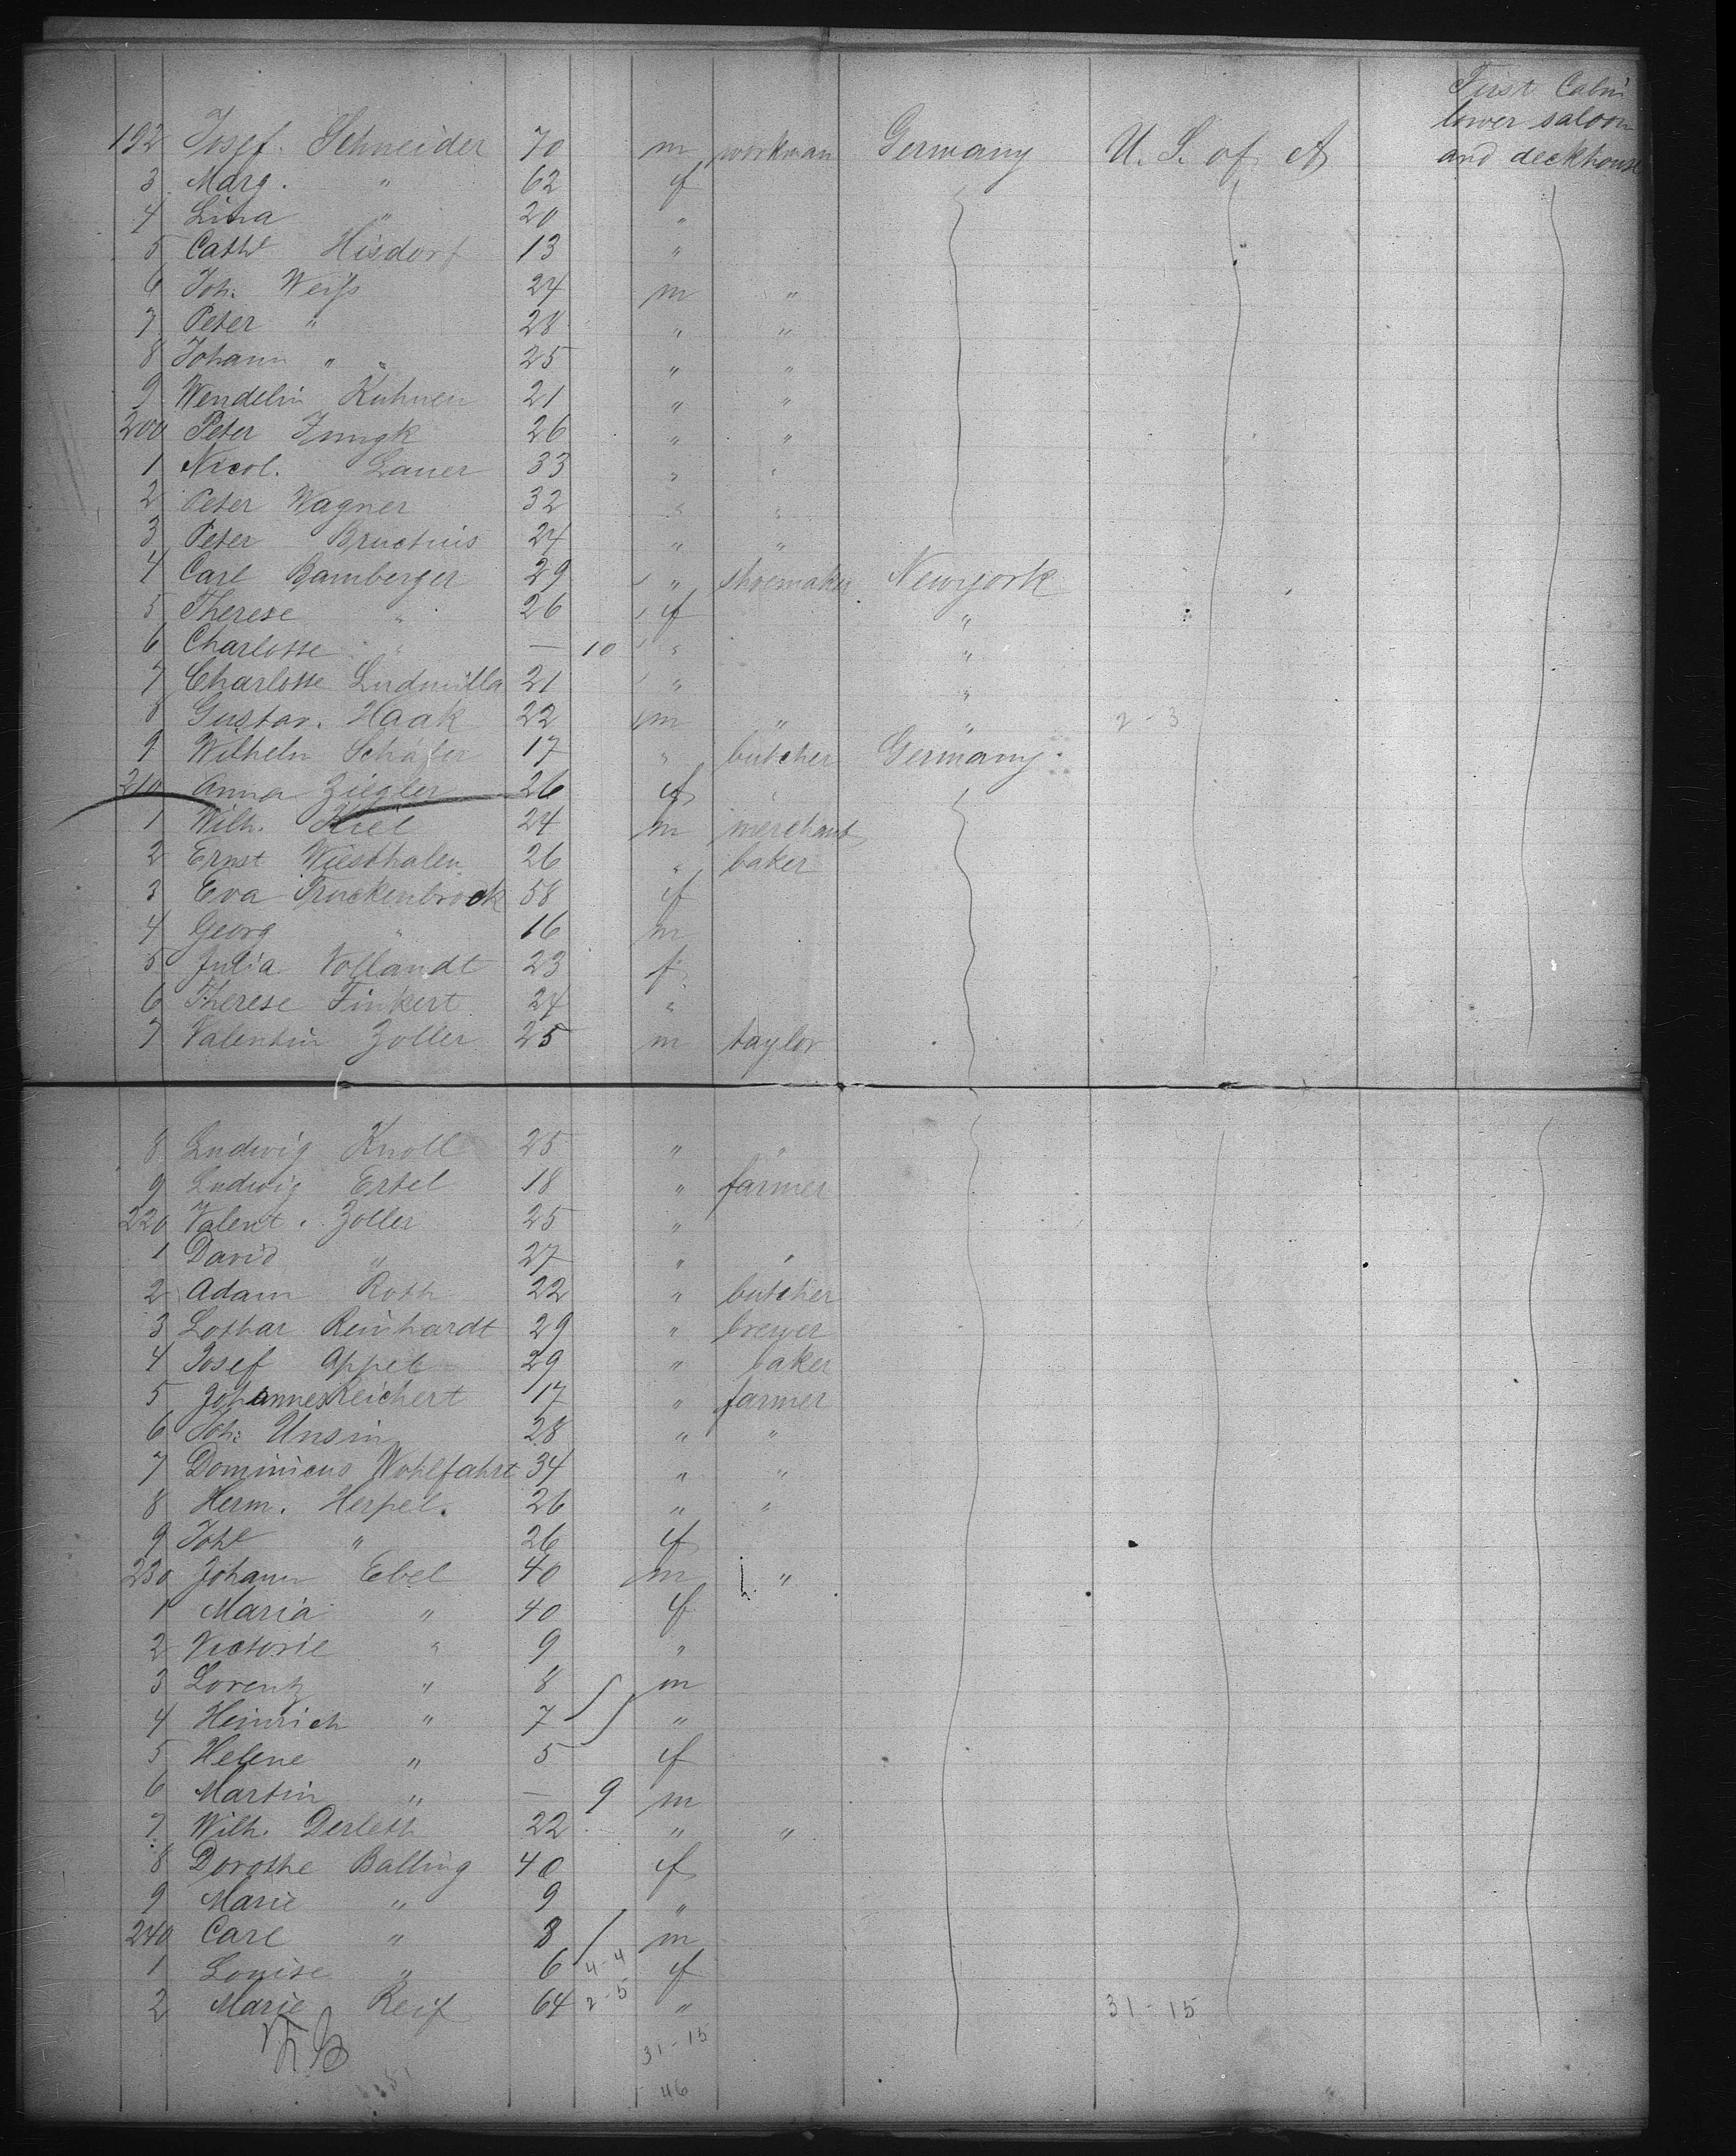 First Cabin
lower saloon
and deckhouse
192 Josef. Schneider 70 m workman Germany U. S. of A
3 Marg. " 62 f
4 Lina " 20 "
5 Cathe Hisdorf 13 "
6 Joh. Weiss 24 m "
7 Peter " 28 " "
8 Johann " " 25 " "
9 Wendelin Kuhnen 21 " "
200 Peter Jungk 26 " "
1 Nicol. Lauer 33 " "
2 Peter Wagner 32 " "
3 Peter 24 " "
4 Carl Bamberger 29 " shoemaker Newyork
5 Therese " 26 f "
6 Charlotte " — 10 " "
7 Charlotte Ludmilla 21 " "
8 Gustav. Haak 22 m " " 2-3
9 Wilhelm Schäfer 17 " butcher Germany.
210 Anna Ziegler 26 f
1 Wilh. Kiel 24 m merchant
2 Ernst Wiesthalen 26 " baker
3 Eva Truckenbrock 58 f
4 Georg " 16 m
5 Julia Vollandt 23 f
6 Therese Finkert 24 "
7 Valentin Zoller 25 m taylor
8 Ludwig Knoll 25 " "
9 Ludwig Ertel 18 " farmer
220 Valent. Zoller 25 "
1 David " 27 " "
2 Adam Roth 22 " butcher
3 Lothar Reinhardt 29 " brewer
4 Josef Appel 29 " baker
5 Johannes Reichert 17 " farmer
6 Joh: Unsin 28 " "
7 Dominicus Wohlfahrt 34 " "
8 Herm. Herpel. 26 " "
9 Johe " 26 f
230 Johann Ebel 40 m "
1 Maria " 40 f
2 Victorie " 9 "
3 Lorentz " 8 m
4 Heinrich " 7 "
5 Helene " 5 f
6 Martin " — 9 m
7 Wilh. Derleth 22 " "
8 Dorothe Balling 40 f
9 Marie " 9 "
240 Carl " 8 m
1 Louise " 6 4-4 f
2 Marie Reif 64 2-5 " 31-15
31-15
46